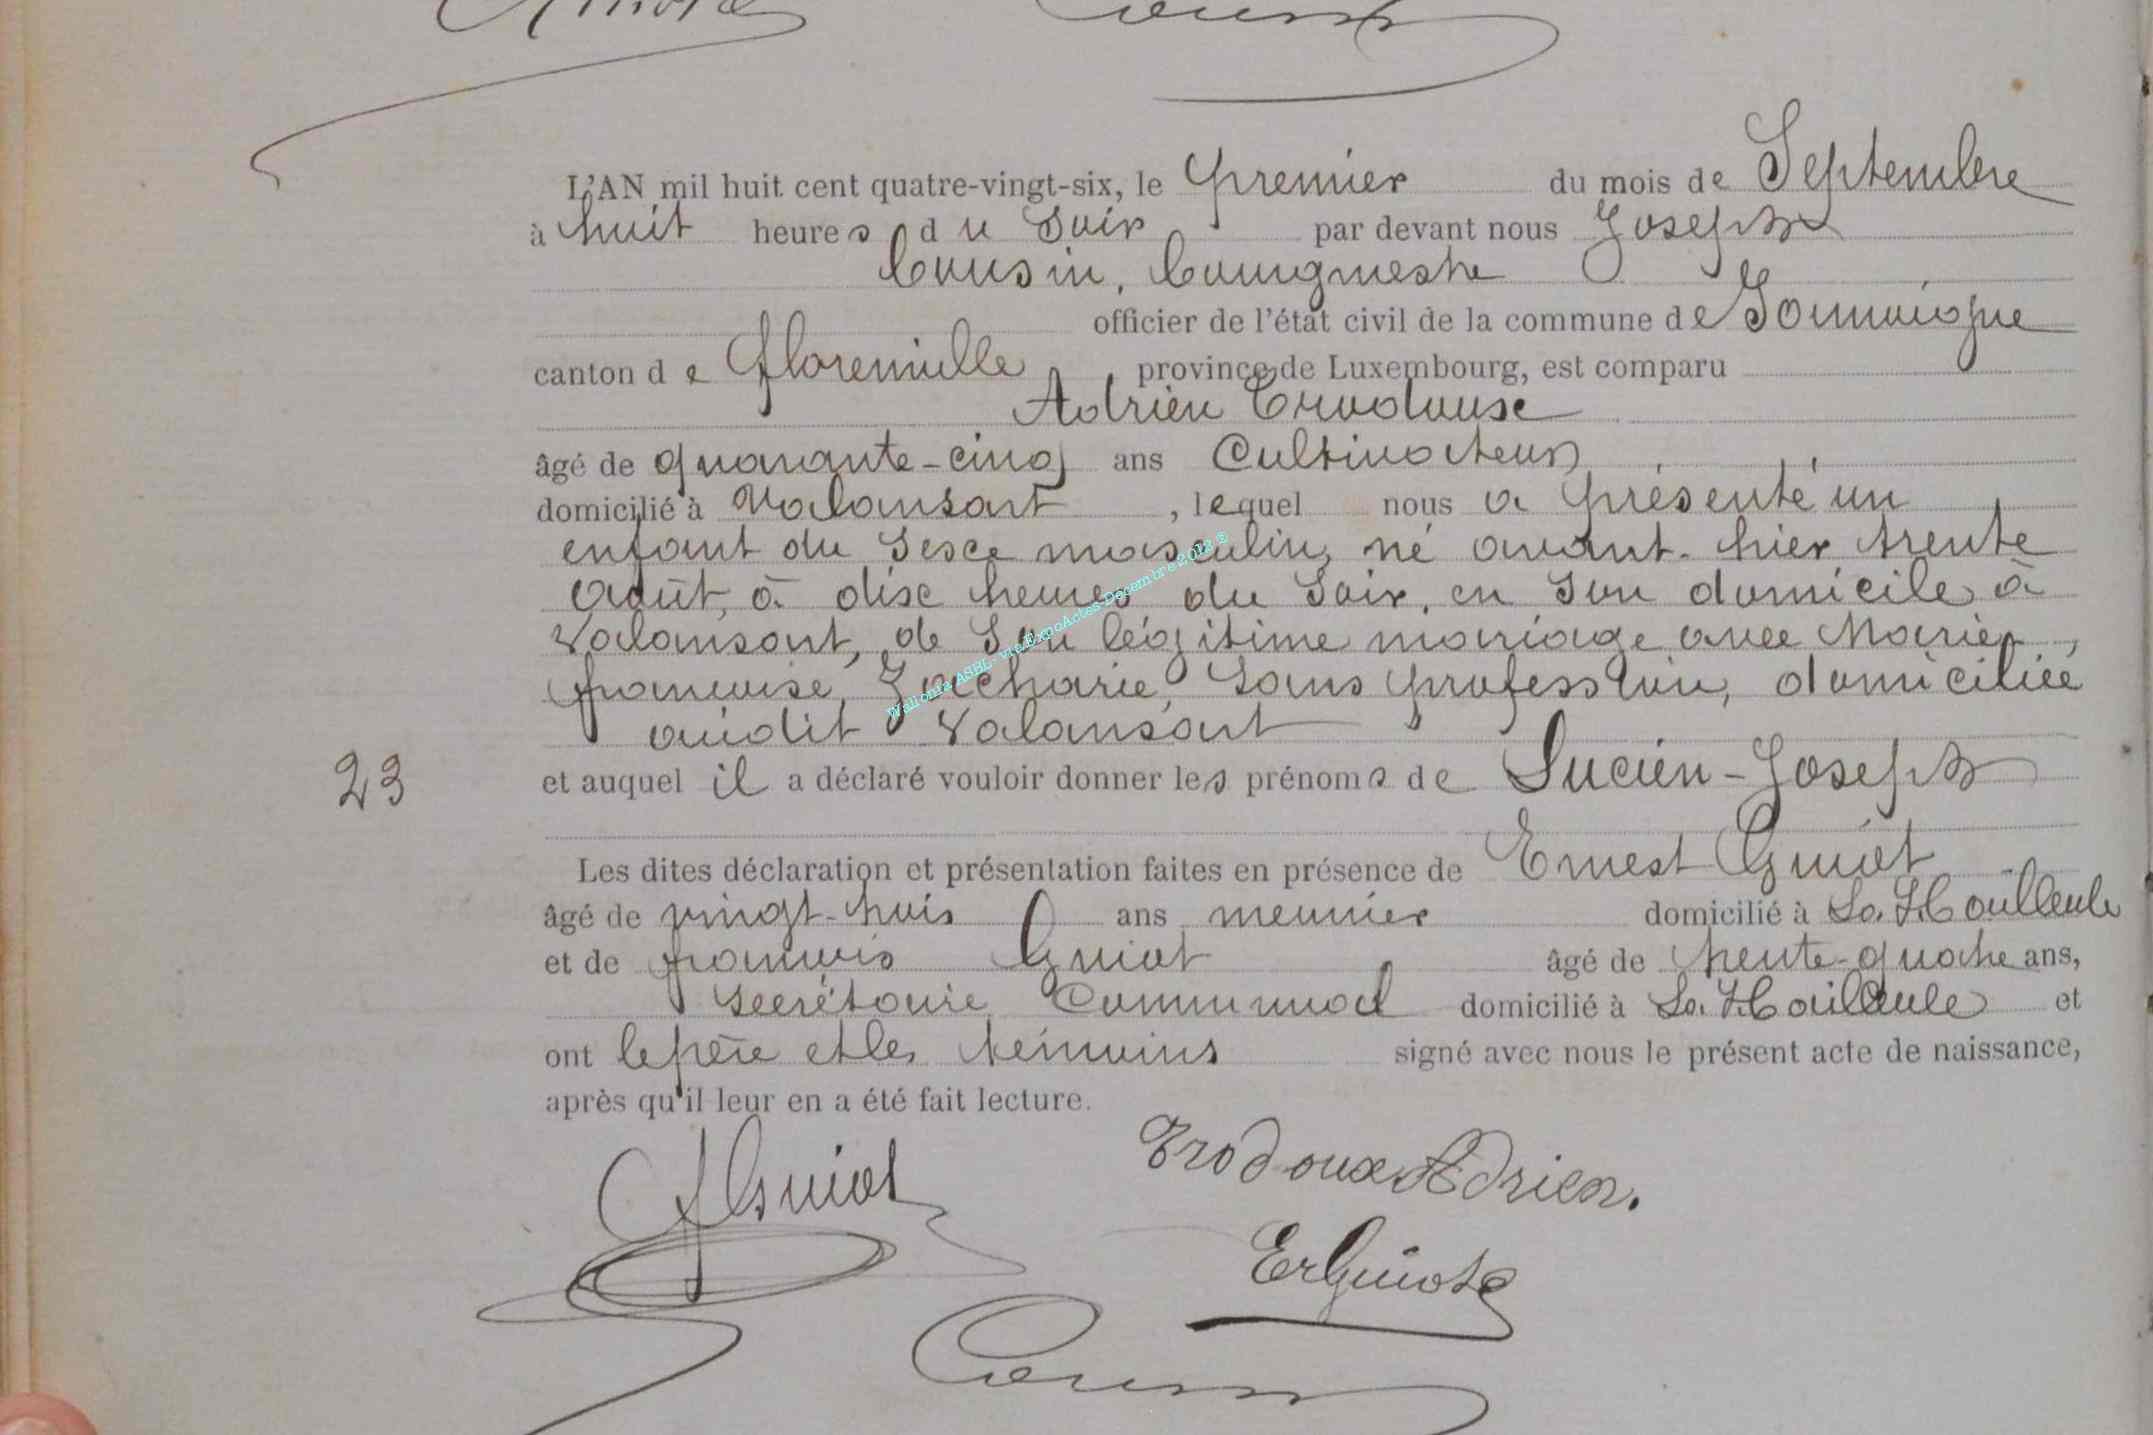 L'AN mil huit cent quatre-vingt-six, le premier du mois de Septembre
à huit heures du Soir par devant nous Joseph
Cousin, bourgmestre
officier de l'état civil de la commune de
canton de Florenville, province de Luxembourg, est comparu
Adrien Trodoux
âgé de quarante-cinq ans Cultivateur
domicilié à Valansart, lequel nous a présenté un
enfant du sexe masculin, né avant-hier trente
Août, à dix heures du Soir, en Son domicile à
Valansart, de Son légitime mariage avec Marie,
françoise, Zacharie, Sans profession, domiciliée
audit Valansart
23
et auquel il a déclaré vouloir donner les prénoms de Lucien-Joseph
Les dites déclaration et présentation faites en présence de Ernest Guiot
âgé de vingt-huit ans meunier domicilié à La Hailleule
et de françois Guiot âgé de trente-quatre ans,
Secrétaire Communal domicilié à La Hailleule et
ont le père et les témoins signé avec nous le présent acte de naissance,
après qu'il leur en a été fait lecture.
FGuiot
Trodoux Adrien.
ErGuiot
Cousin
Wallonia ASBL - via ExpoActes Décembre 2013 ©